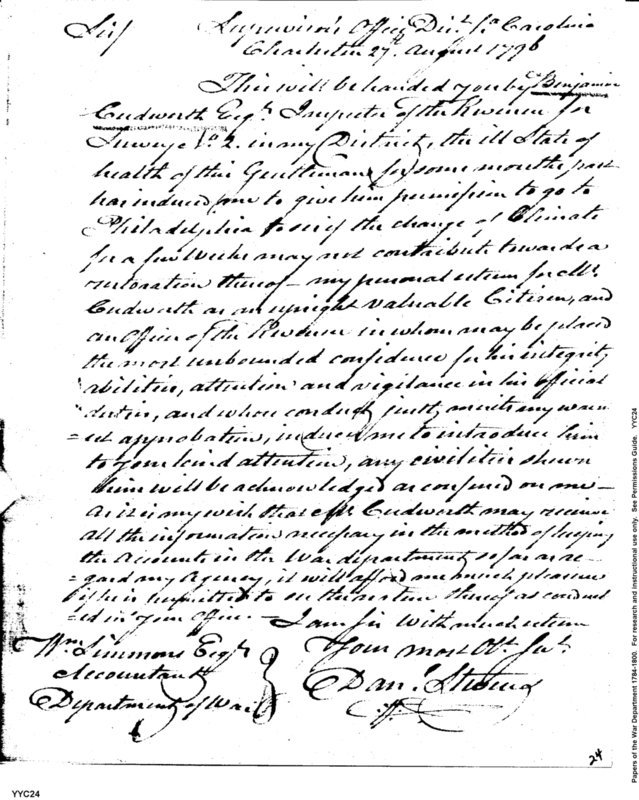 Sir/ Supervisor's Office Dist. So. Carolina
Charleston 27th. August 1796
This will be handed you by Benjamin
Cudworth Esqr. Inspector of the Revenue for
Survey No. 2. in my District, the ill State of
health of this Gentleman for some months past
has induced me to give him permission to go to
Philadelphia to see if the change of Climate
for a few Weeks may not contribute towards a
restoration thereof — my personal esteem for Mr.
Cudworth as an upright valuable Citizen, and
an Officer of the Revenue in whom may be placed
the most unbounded confidence for his integrity
abilities, attention and vigilance in his official
duties, and whose conduct justly merits my warm
=est approbation, induces me to introduce him
to your kind attention, any civilities shewn
him will be acknowledged as confered on me —
As it is my wish that Mr. Cudworth may receive
all the information necessary in the method of keeping
the Accounts in the War department, so far as re-
=gard my Agency, it will afford me much pleasure
if he is permitted to see the system thereof as conduct
=ed in your Office. — I am Sir with much esteem
Your most Obt. Svt.
Danl. Stevens
Wm. Simmons Esqr.
Accountant
Department of War
24
YYC24
Papers of the War Department 1784-1800. For research and instructional use only. See Permissions Guide. YYC24